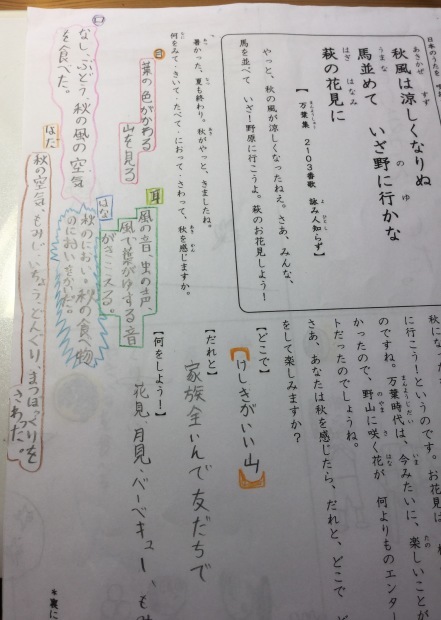 日本のうたを
秋風は涼しくなりぬ
馬並めて　いざ野に行かな
萩の花見に
【万葉集　２１０３番歌　詠み人知らず】
やっと、秋の風が涼しくなったねえ。さあ、みんな、
馬を並べて　いざ！野原に行こうよ。萩のお花見しよう！
暑かった、夏も終わり。秋がやっと、きましたね。
何をみて・きいて・たべて・におって・さわって、秋を感じますか。
目
葉の色がかわる
山を見る
耳
風の音、虫の声、
風で葉がゆする音
がきこえる。
はな
秋のにおい。秋の食べ物
のにおいをかいだ。
口
なし、ぶどう、秋の風の空気
を食べた。
はだ
秋の空気、もみじ、いちょう、どんぐり、まつぼっくりを
さわった。
秋にな
に行こう！というのです。お花見は、
のですね。万葉時代は、今みたいに、楽しいことが
かったので、野山に咲く花が　何よりものエンター
トだったのでしょうね。
さあ、あなたは秋を感じたら、だれと、どこで
をして楽しみますか？
【どこで】
けしきがいい山
【だれと】
家族全いんで友だちで
【何をしよう！】
花見、月見、バーベキュー、
＊裏に